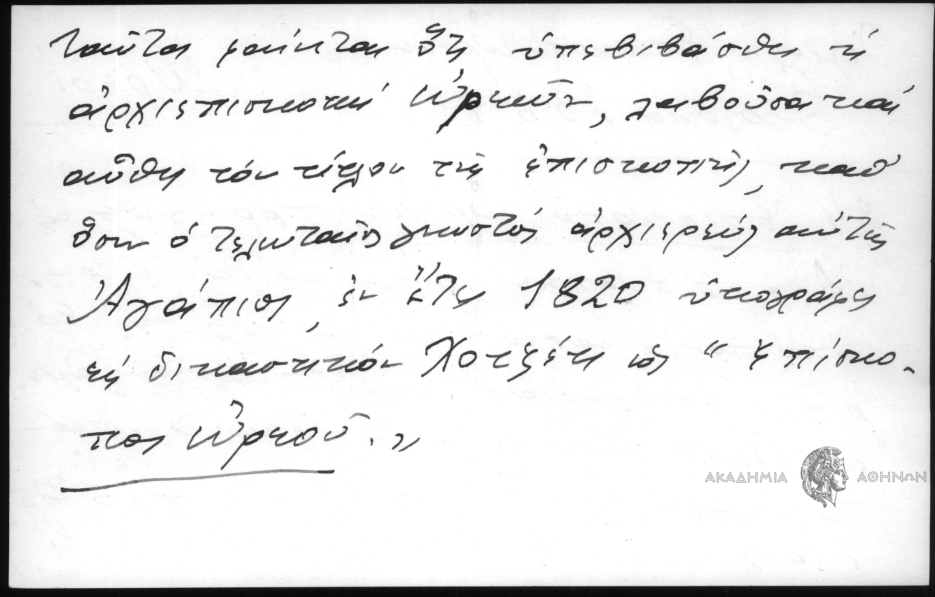 ταῦτα φαίνεται ὅτι ὑπεβιβάσθη ἡ
ἀρχιεπισκοπὴ Ὠρεῶν, λαβοῦσα καὶ
αὕθη τὸν τίτλον τῆς ἐπισκοπῆς, καθ'
ὅσον ὁ τελευταῖος γνωστὸς ἀρχιερεὺς αὐτῆς
Ἀγάπιος, ἐν ἔτει 1820 ὑπογράφει
εἰς δικαστικὸν Χοτζέτι ὡς "ἐπίσκο-
πος Ὠρεοῦ."
ΑΚΑΔΗΜΙΑ ΑΘΗΝΩΝ